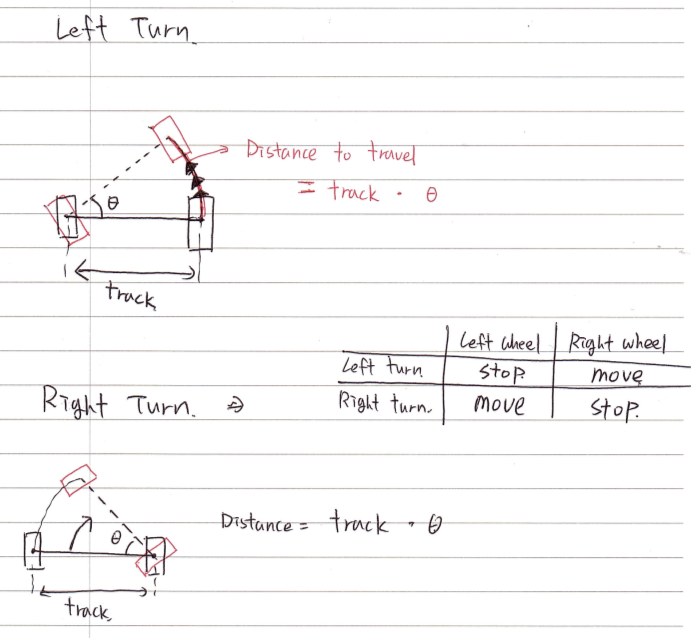 Left Turn.
Distance to travel
= track · θ
θ
track
Left wheel Right wheel
Left turn. stop. move
Right Turn. ⇒ Right turn. move stop.
Distance = track · θ
θ
track